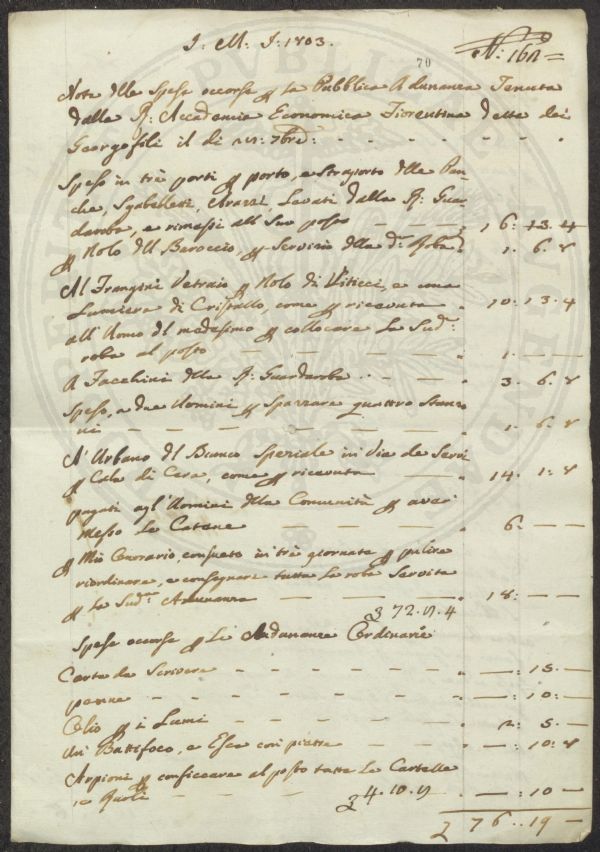 J. M. J. 1803.
70
N: 162 =
Note delle Spese occorse p la Pubblica Adunanza Tenuta
dalla R: Accademia Economica Fiorentina detta dei
Georgofili il di 7bre: - - - - -
Speso in trè porti p porto, e Straporto delle Pan-
che, Sgabelletti, Arazzi, Levati dalla R: Guar
daroba, e rimessi al Suo posto - - - 16: 13. 4
p Nolo del Baroccio, p Servizio della d: Roba 1. 6. 8
Al Frangini Vetraio p Nolo di Viticci, e una
Lumiera di Cristallo, come p ricevuta 10: 13. 4
all'Uomo del medesimo p collocare la Sud:
roba al posto - - - - 1. — —
A Facchini della R: Guardaroba - - - 3. 6. 8
Speso, a due Uomini p Spazzare quattro Stanzo
ni - - - - - 1. 6. 8
A' Urbano del Bianco Speziale in Via de Servi
p Calo di Cera, come p ricevuta — 14. 1: 8
pagati agl'Uomini della Comunità p aver
messo le Catene — — — 6. — —
p Mio Onorario, consueto in trè giornate p pulire
riordinare, e consegnare tutta la roba Servita
p la Sud: Adunanza — — 18: — —
72. 4
Spese occorse p Le Adunanze Ordinarie
Carta da Scrivere - - - - — : 15. —
penne - - - - - — : 10: —
Olio p i Lumi - - - - 2: 5. —
Un Battifoco, e Esca con pietre - - — : 10: 8
Arpioni p conficcare al posto tutte le Cartelle
Ruoli - - - — : 10 —
4. 10.
76.. 19 —